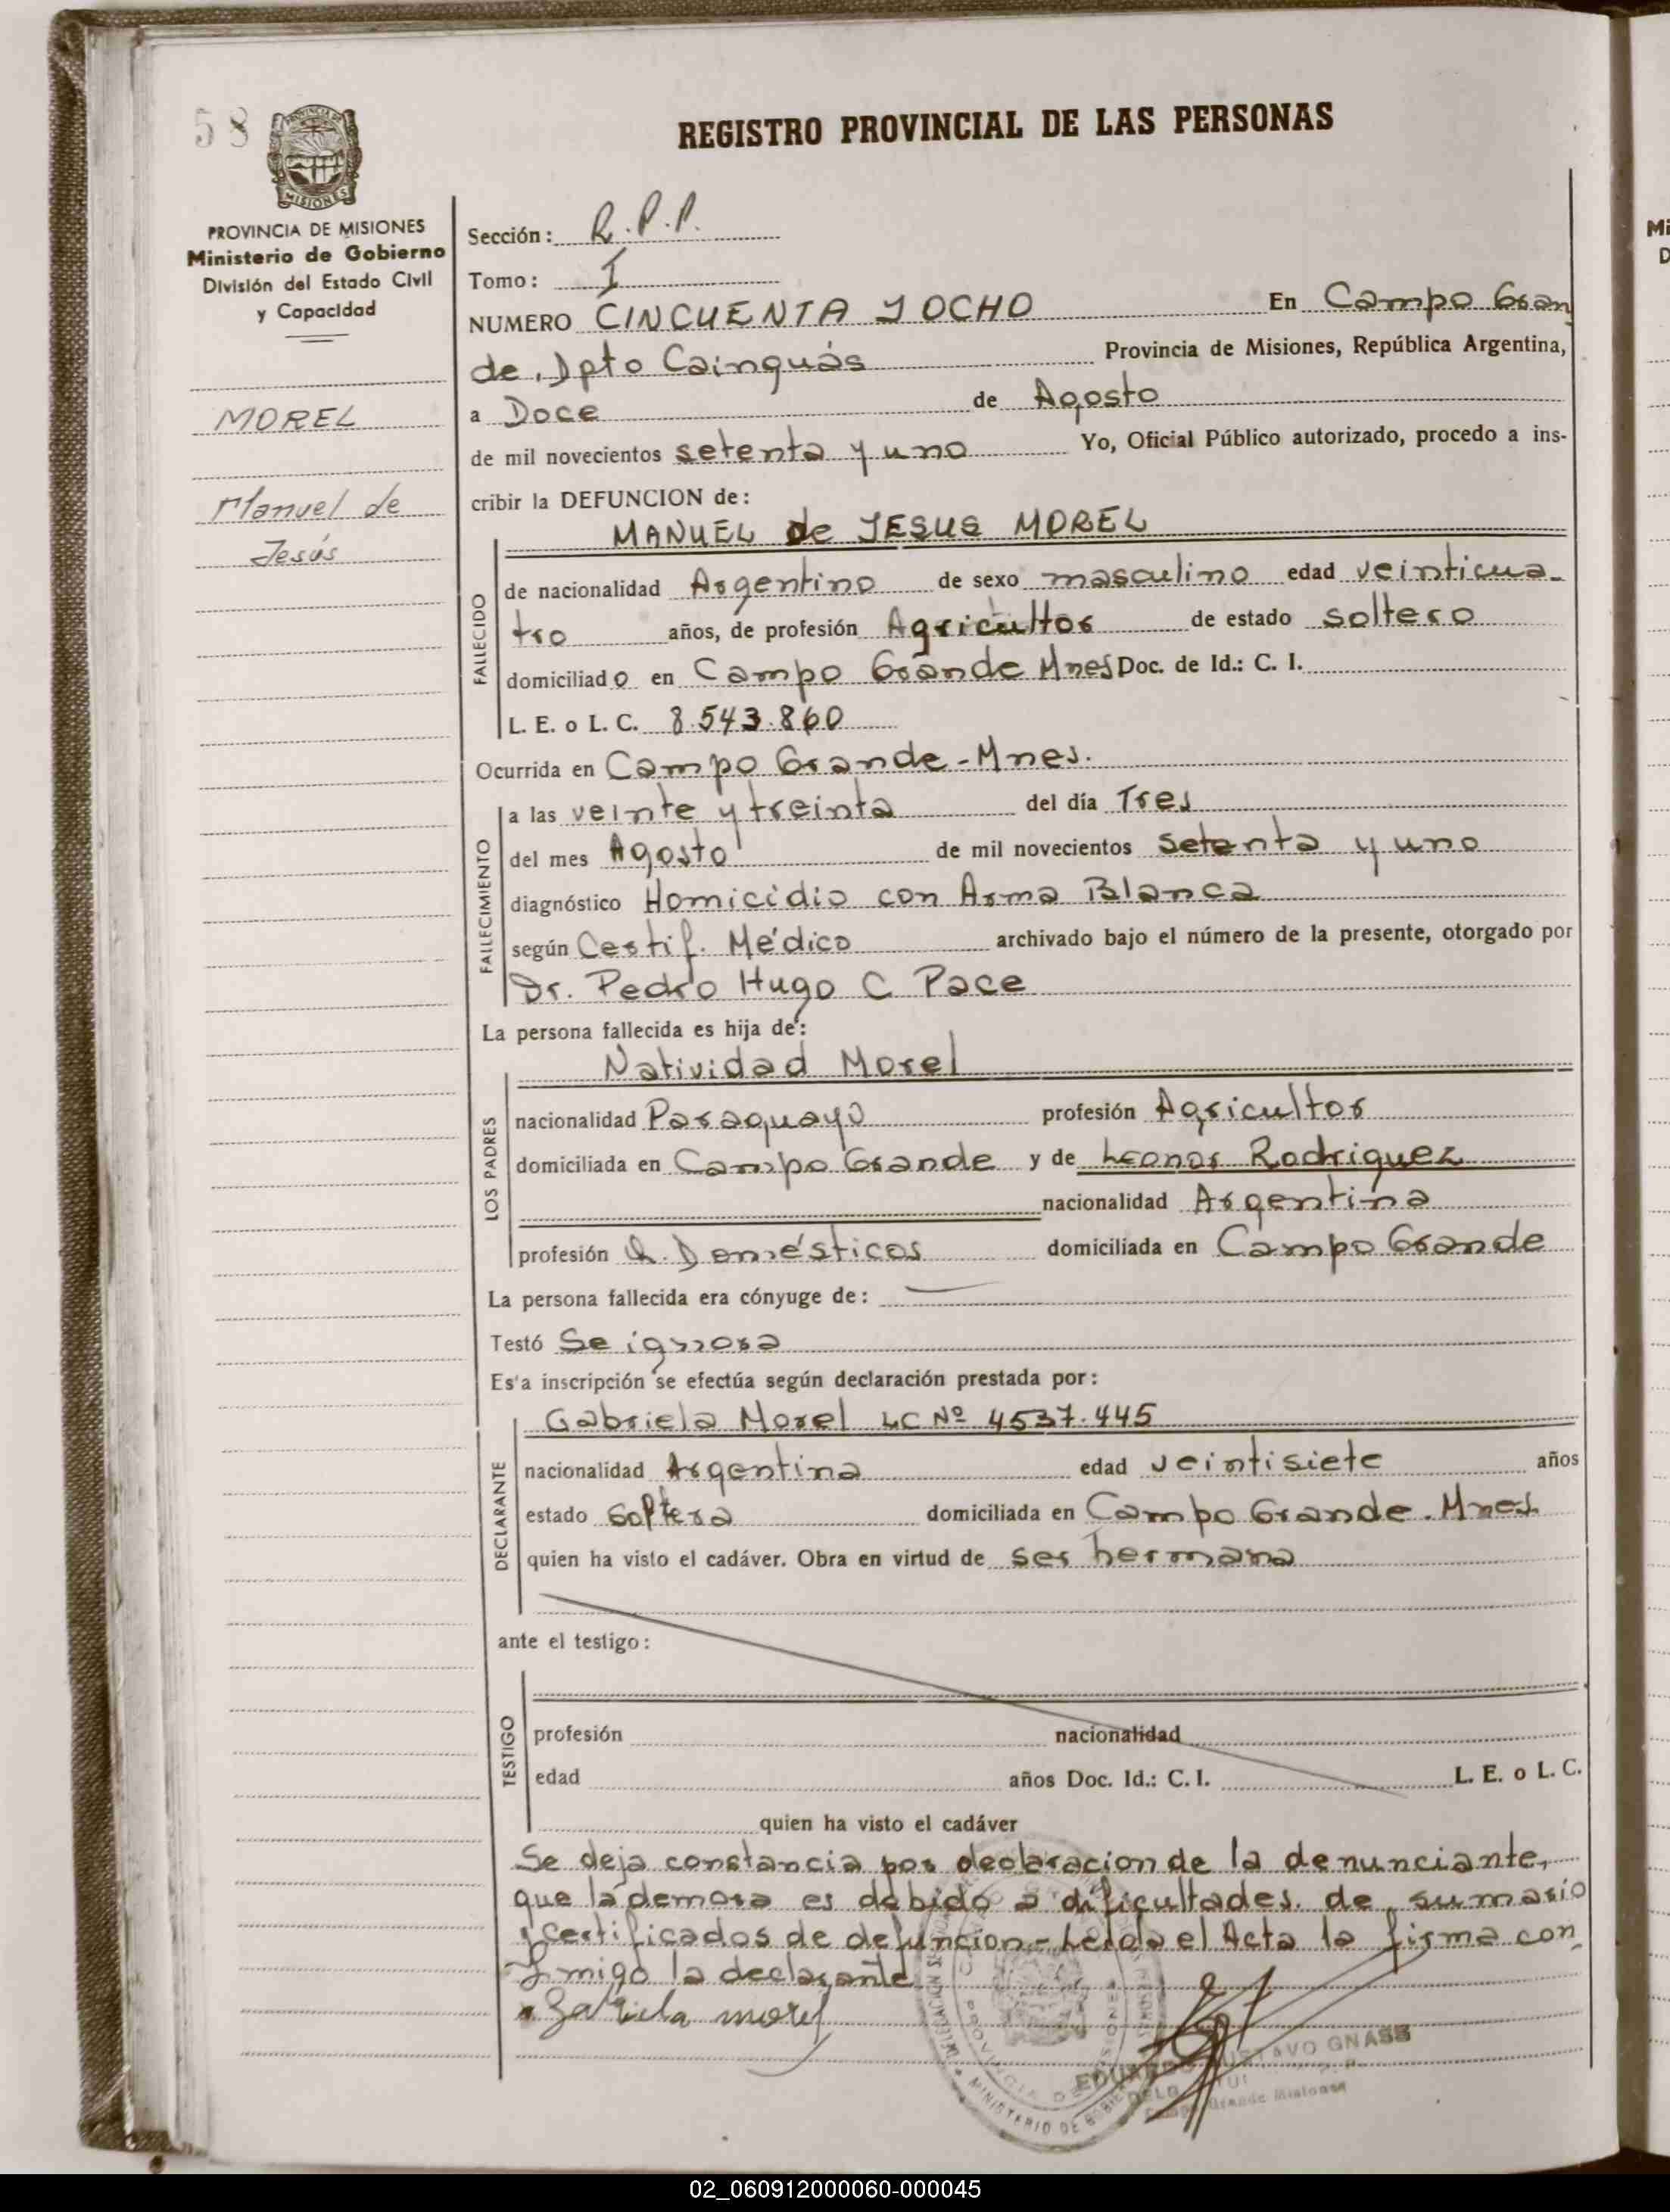 58
REGISTRO PROVINCIAL DE LAS PERSONAS
PROVINCIA DE MISIONES
Ministerio de Gobierno
División del Estado Civil
y Capacidad
MOREL
Manuel de
Jesús
Sección: R.P.P.
Tomo: I
NUMERO CINCUENTA Y OCHO En Campo Gran
de, Dpto Cainguás Provincia de Misiones, República Argentina,
a Doce de Agosto
de mil novecientos setenta y uno Yo, Oficial Público autorizado, procedo a ins-
cribir la DEFUNCION de:
MANUEL de JESUS MOREL
FALLECIDO
de nacionalidad Argentino de sexo masculino edad veinticua-
tro años, de profesión Agricultor de estado soltero
domiciliado en Campo Grande Mnes Doc. de Id.: C. I.
L. E. o L. C. 8.543.860
Ocurrida en Campo Grande - Mnes.
FALLECIMIENTO
a las veinte y treinta del día Tres
del mes Agosto de mil novecientos setenta y uno
diagnóstico Homicidio con Arma Blanca
según Certif. Médico archivado bajo el número de la presente, otorgado por
Dr. Pedro Hugo C Pace
La persona fallecida es hija de:
Natividad Morel
LOS PADRES
nacionalidad Paraguayo profesión Agricultor
domiciliada en Campo Grande y de Leonor Rodriguez
nacionalidad Argentina
profesión Q. Domésticos domiciliada en Campo Grande
La persona fallecida era cónyuge de:
Testó Se ignora
Es'a inscripción se efectúa según declaración prestada por:
Gabriela Morel LC Nº 4537.445
DECLARANTE
nacionalidad Argentina edad veintisiete años
estado soltera domiciliada en Campo Grande. Mnes
quien ha visto el cadáver. Obra en virtud de ser hermana
ante el testigo:
TESTIGO
profesión nacionalidad
edad años Doc. Id.: C. I. L. E. o L. C.
quien ha visto el cadáver
Se deja constancia por declaracion de la denunciante,
que la demora es debido a dificultades de sumario
y certificados de defuncion - Leida el Acta la firma con
migo la declarante
Gabriela morel
EDUARDO GUSTAVO GNASS
Campo Grande Misiones
PROVINCIA DE
MINISTERIO DE GOBIERNO
02_060912000060-000045